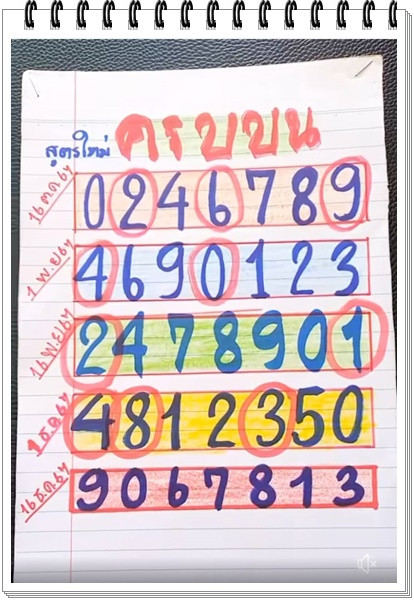 สูตรใหม่ ครบบน
16 ต.ค 67 0246789
1 พ.ย 67 4690123
16 พ.ย 67 2478901
1 ธ.ค 67 4812350
16 ธ.ค 67 9067813